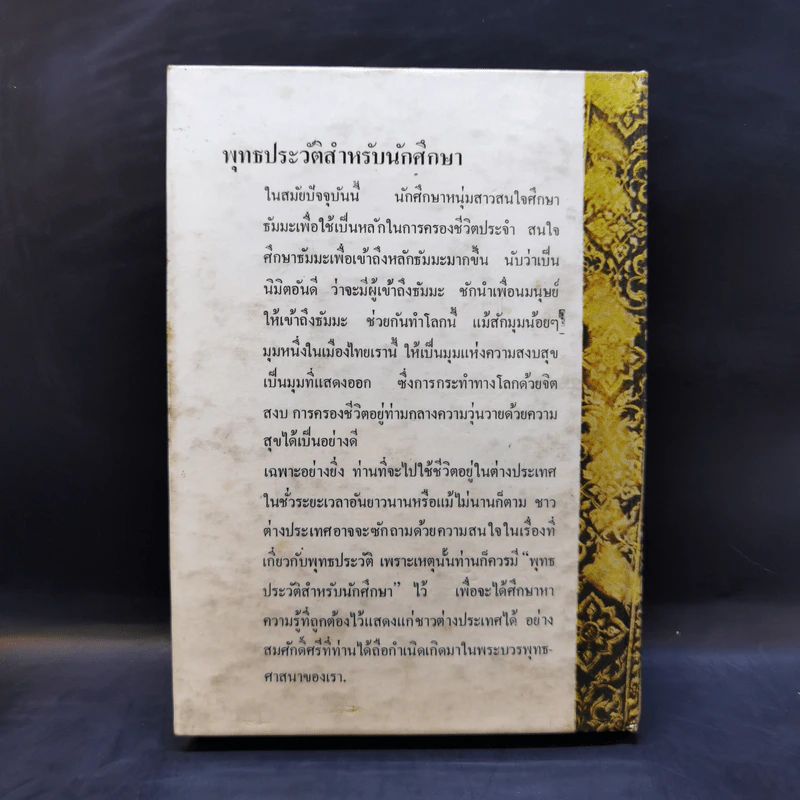 พุทธประวัติสำหรับนักศึกษา
ในสมัยปัจจุบันนี้ นักศึกษาหนุ่มสาวสนใจศึกษา
ธัมมะเพื่อใช้เป็นหลักในการครองชีวิตประจำ สนใจ
ศึกษาธัมมะเพื่อเข้าถึงหลักธัมมะมากขึ้น นับว่าเป็น
นิมิตอันดี ว่าจะมีผู้เข้าถึงธัมมะ ชักนำเพื่อนมนุษย์
ให้เข้าถึงธัมมะ ช่วยกันทำโลกนี้ แม้สักมุมน้อยๆ
มุมหนึ่งในเมืองไทยเรานี้ ให้เป็นมุมแห่งความสงบสุข
เป็นมุมที่แสดงออก ซึ่งการกระทำทางโลกด้วยจิต
สงบ การครองชีวิตอยู่ท่ามกลางความวุ่นวายด้วยความ
สุขได้เป็นอย่างดี
เฉพาะอย่างยิ่ง ท่านที่จะไปใช้ชีวิตอยู่ในต่างประเทศ
ในชั่วระยะเวลาอันยาวนานหรือแม้ไม่นานก็ตาม ชาว
ต่างประเทศอาจจะซักถามด้วยความสนใจในเรื่องที่
เกี่ยวกับพุทธประวัติ เพราะเหตุนั้นท่านก็ควรมี “พุทธ
ประวัติสำหรับนักศึกษา” ไว้ เพื่อจะได้ศึกษาหา
ความรู้ที่ถูกต้องไว้แสดงแก่ชาวต่างประเทศได้ อย่าง
สมศักดิ์ศรีที่ท่านได้ถือกำเนิดเกิดมาในพระบวรพุทธ-
ศาสนาของเรา.